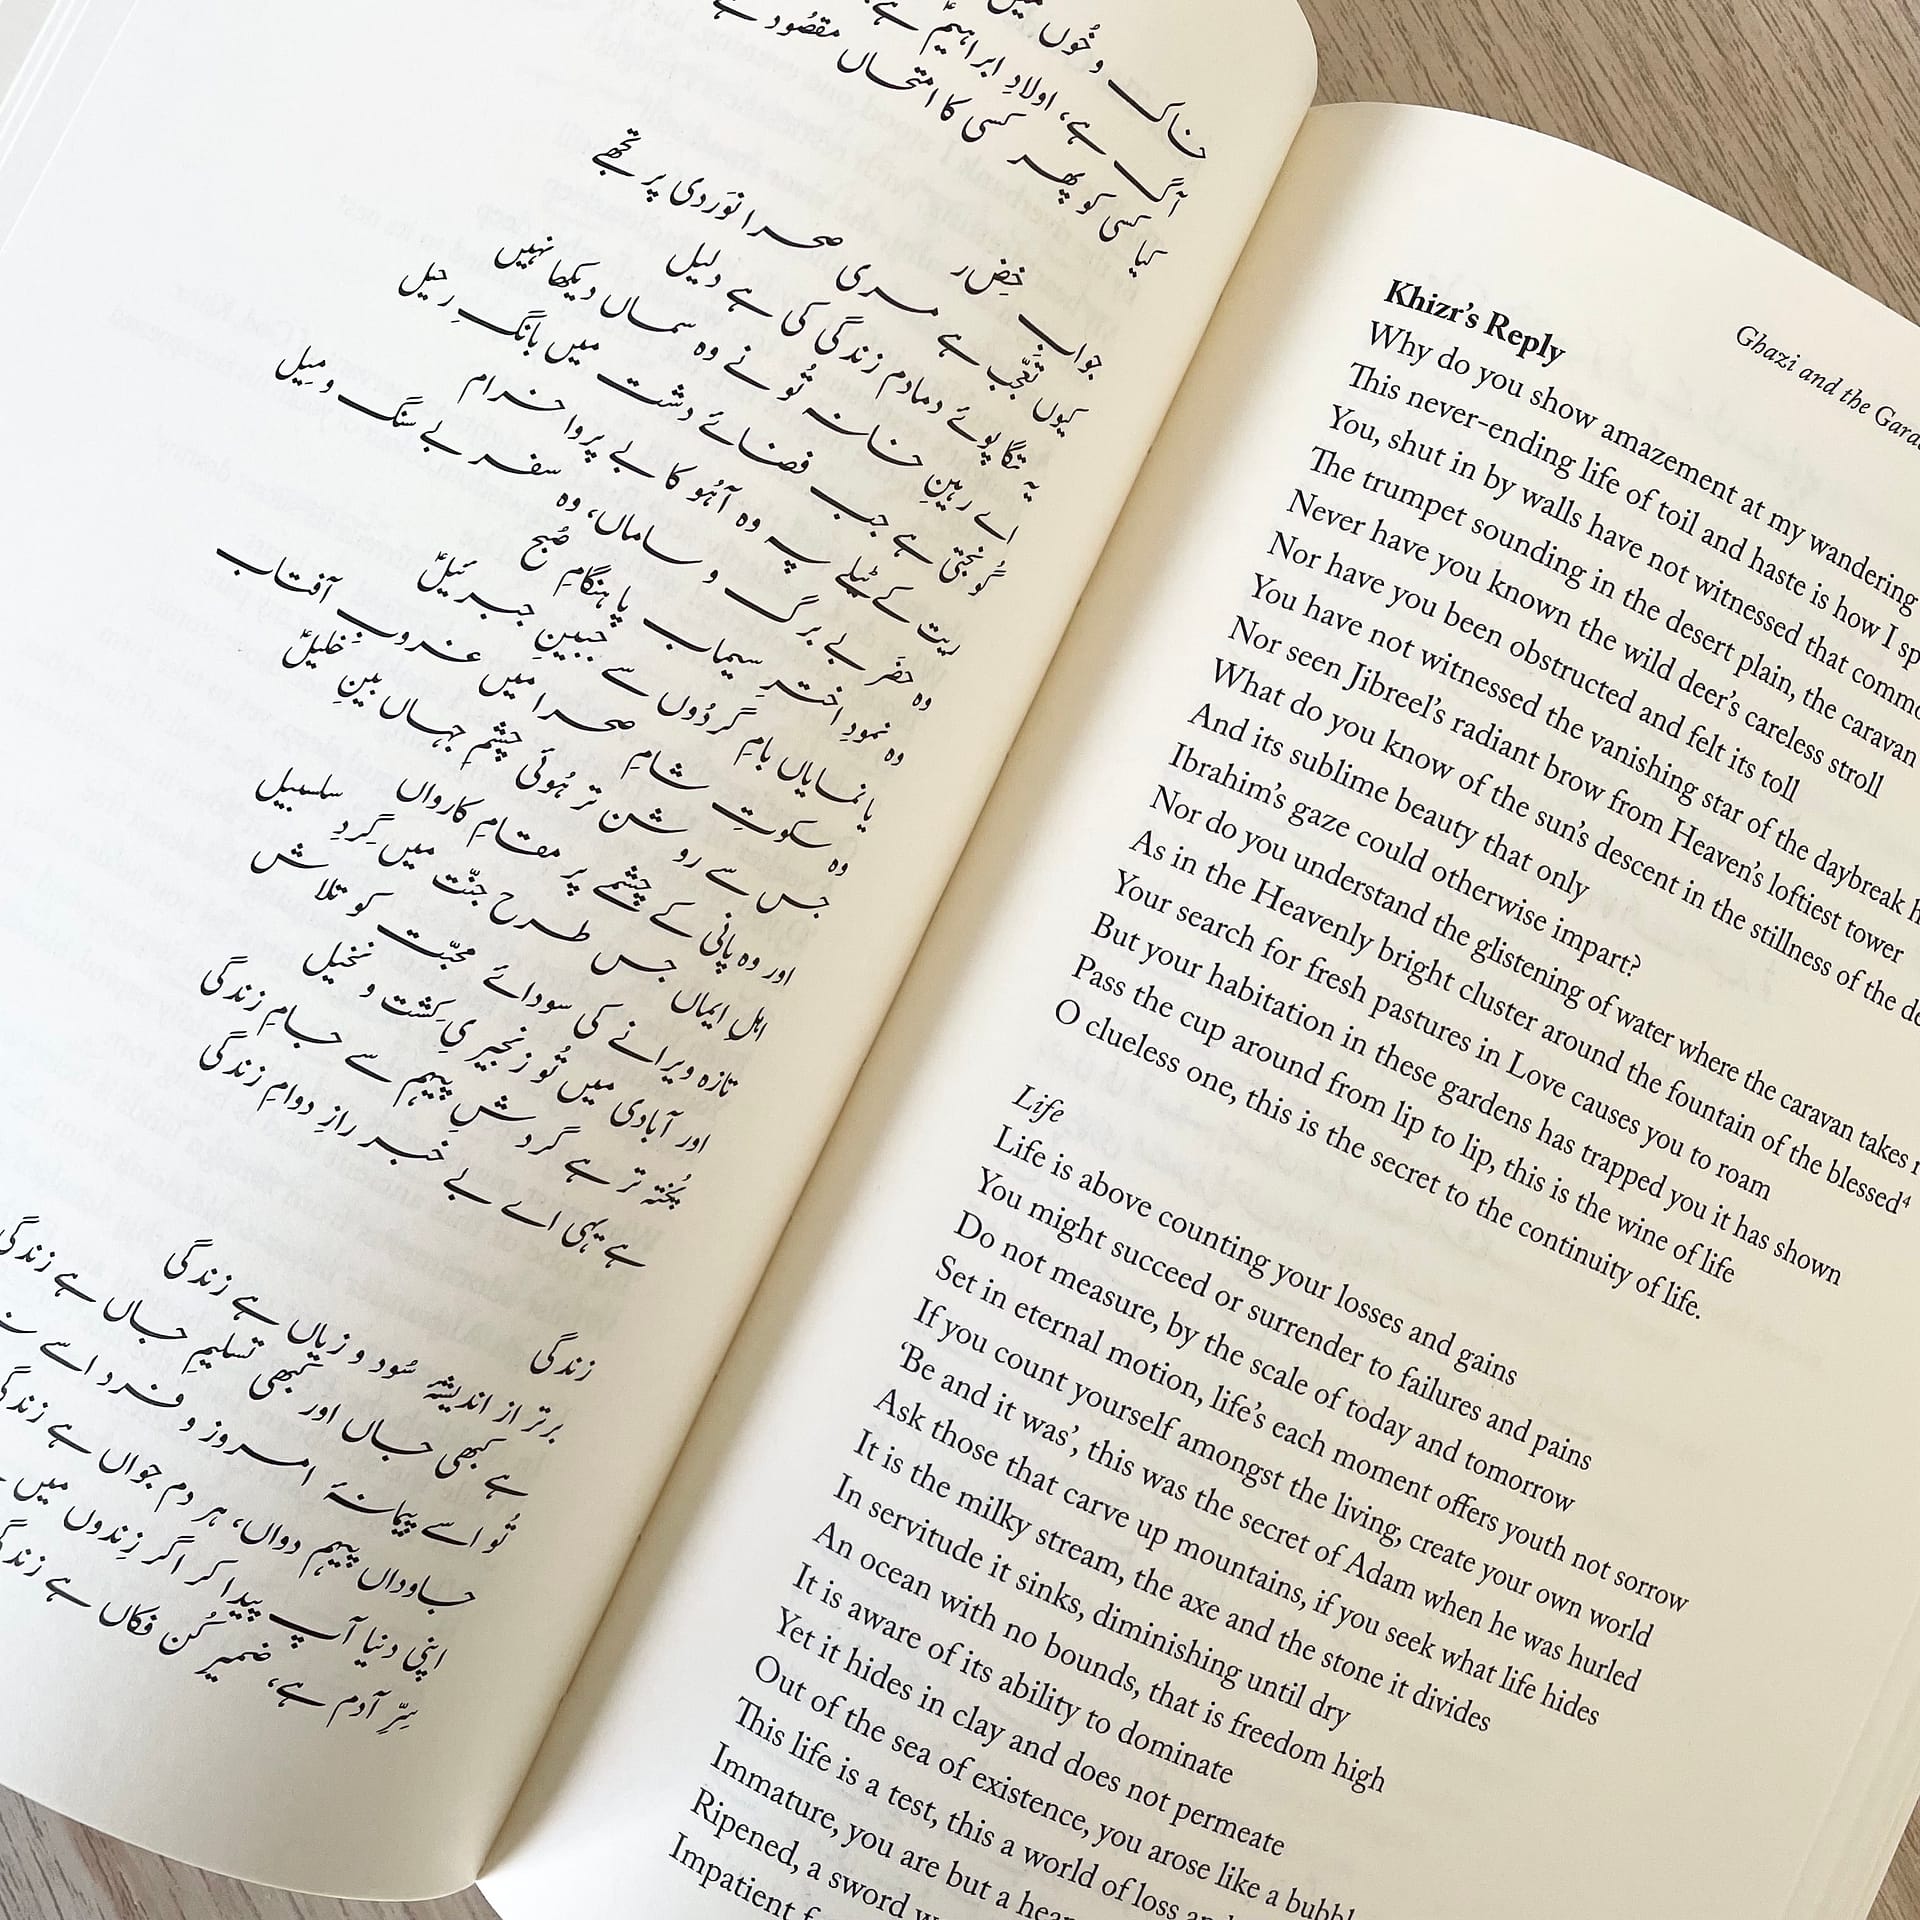 خاک و خُوں میں
آگ ہے، اولادِ ابراہیمؑ ہے،
کیا کسی کو پھر کسی کا امتحاں مقصُود ہے
جوابِ خِضر
کیوں تعَجّب ہے مری صحرا نَوَردی پر تجھے
یہ تگاپوئے دمادم زندگی کی ہے دلیل
اے رہینِ خانہ تُو نے وہ سماں دیکھا نہیں
گُونجتی ہے جب فضائے دشت میں بانگِ رحیل
ریت کے ٹیلے پہ وہ آہُو کا بے پروا خرام
وہ حضَر بے برگ و ساماں، وہ سفر بے سنگ و مِیل
وہ نمودِ اخترِ سیماب پا ہنگامِ صُبح
یا نمایاں بامِ گردُوں سے جبینِ جبرئیلؑ
وہ سکوتِ شامِ صحرا میں غروبِ آفتاب
جس سے روشن تر ہُوئی چشمِ جہاں بینِ خلیلؑ
اور وہ پانی کے چشمے پر مقامِ کارواں
اہلِ ایماں جس طرح جنّت میں گِردِ سلسبیل
تازہ ویرانے کی سودائے محبّت کو تلاش
اور آبادی میں تُو زنجیریِ کِشت و نخیل
پُختہ تر ہے گردشِ پیہم سے جامِ زندگی
ہے یہی اے بے خبر رازِ دوامِ زندگی
زندگی
برتر از اندیشۂ سُود و زیاں ہے زندگی
ہے کبھی جاں اور کبھی تسلیمِ جاں ہے زندگی
تُو اسے پیمانۂ امروز و فردا سے
جاوداں پیہم دواں، ہر دم جواں ہے زندگی
اپنی دنیا آپ پیدا کر اگر زِندوں میں
سِرِّ آدم ہے، ضمیرِ کُن فکاں ہے زندگی
Ghazi and the
Khizr’s Reply
Why do you show amazement at my wandering
This never-ending life of toil and haste is how I
You, shut in by walls have not witnessed that
The trumpet sounding in the desert plain, the caravan
Never have you known the wild deer’s careless stroll
Nor have you been obstructed and felt its toll
You have not witnessed the vanishing star of the daybreak
Nor seen Jibreel’s radiant brow from Heaven’s loftiest tower
What do you know of the sun’s descent in the stillness of the
And its sublime beauty that only
Ibrahim’s gaze could otherwise impart?
Nor do you understand the glistening of water where the caravan takes
As in the Heavenly bright cluster around the fountain of the blessed⁴
Your search for fresh pastures in Love causes you to roam
But your habitation in these gardens has trapped you it has shown
Pass the cup around from lip to lip, this is the wine of life
O clueless one, this is the secret to the continuity of life.
Life
Life is above counting your losses and gains
You might succeed or surrender to failures and pains
Do not measure, by the scale of today and tomorrow
Set in eternal motion, life’s each moment offers youth not sorrow
If you count yourself amongst the living, create your own world
‘Be and it was’, this was the secret of Adam when he was hurled
Ask those that carve up mountains, if you seek what life hides
It is the milky stream, the axe and the stone it divides
In servitude it sinks, diminishing until dry
An ocean with no bounds, that is freedom high
It is aware of its ability to dominate
Yet it hides in clay and does not permeate
Out of the sea of existence, you arose like a
This life is a test, this a world of loss
Immature, you are but a
Ripened, a sword
Impatient